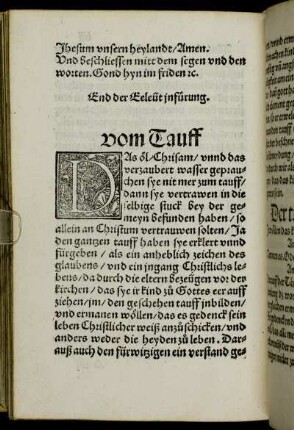 Jhesum vnsern heylandt/Amen.
Vnd beschliessen mitt dem segen vnd den
worten. Gond hyn im friden ꝛc.
End der Eeleüt infürung.
vom Tauff
DAs öl/Chrisam/ vnnd das
verzaubert wasser geprau-
chen sye nit mer zum tauff/
dann sye vertrawen in die
selbige stuck bey der ge-
meyn befunden haben/so
allein an Christum vertrauwen solten/Ja
den gantzen tauff haben sye erklert vnnd
fürgeben/ als ein anheblich zeichen des
glaubens/vnd ein jngang Christlichs le-
bens/da durch die eltern bezeügen vor der
kirchen/das sye ir kind zů Gottes eer auff
ziehen/jm/den geschehen tauff jnbilden/
vnd ermanen wöllen/das es gedenck sein
leben Christlicher weiß anzůschicken/vnd
anders weder die heyden zů leben. Dar-
auß auch den fürwitzigen ein verstand ge-